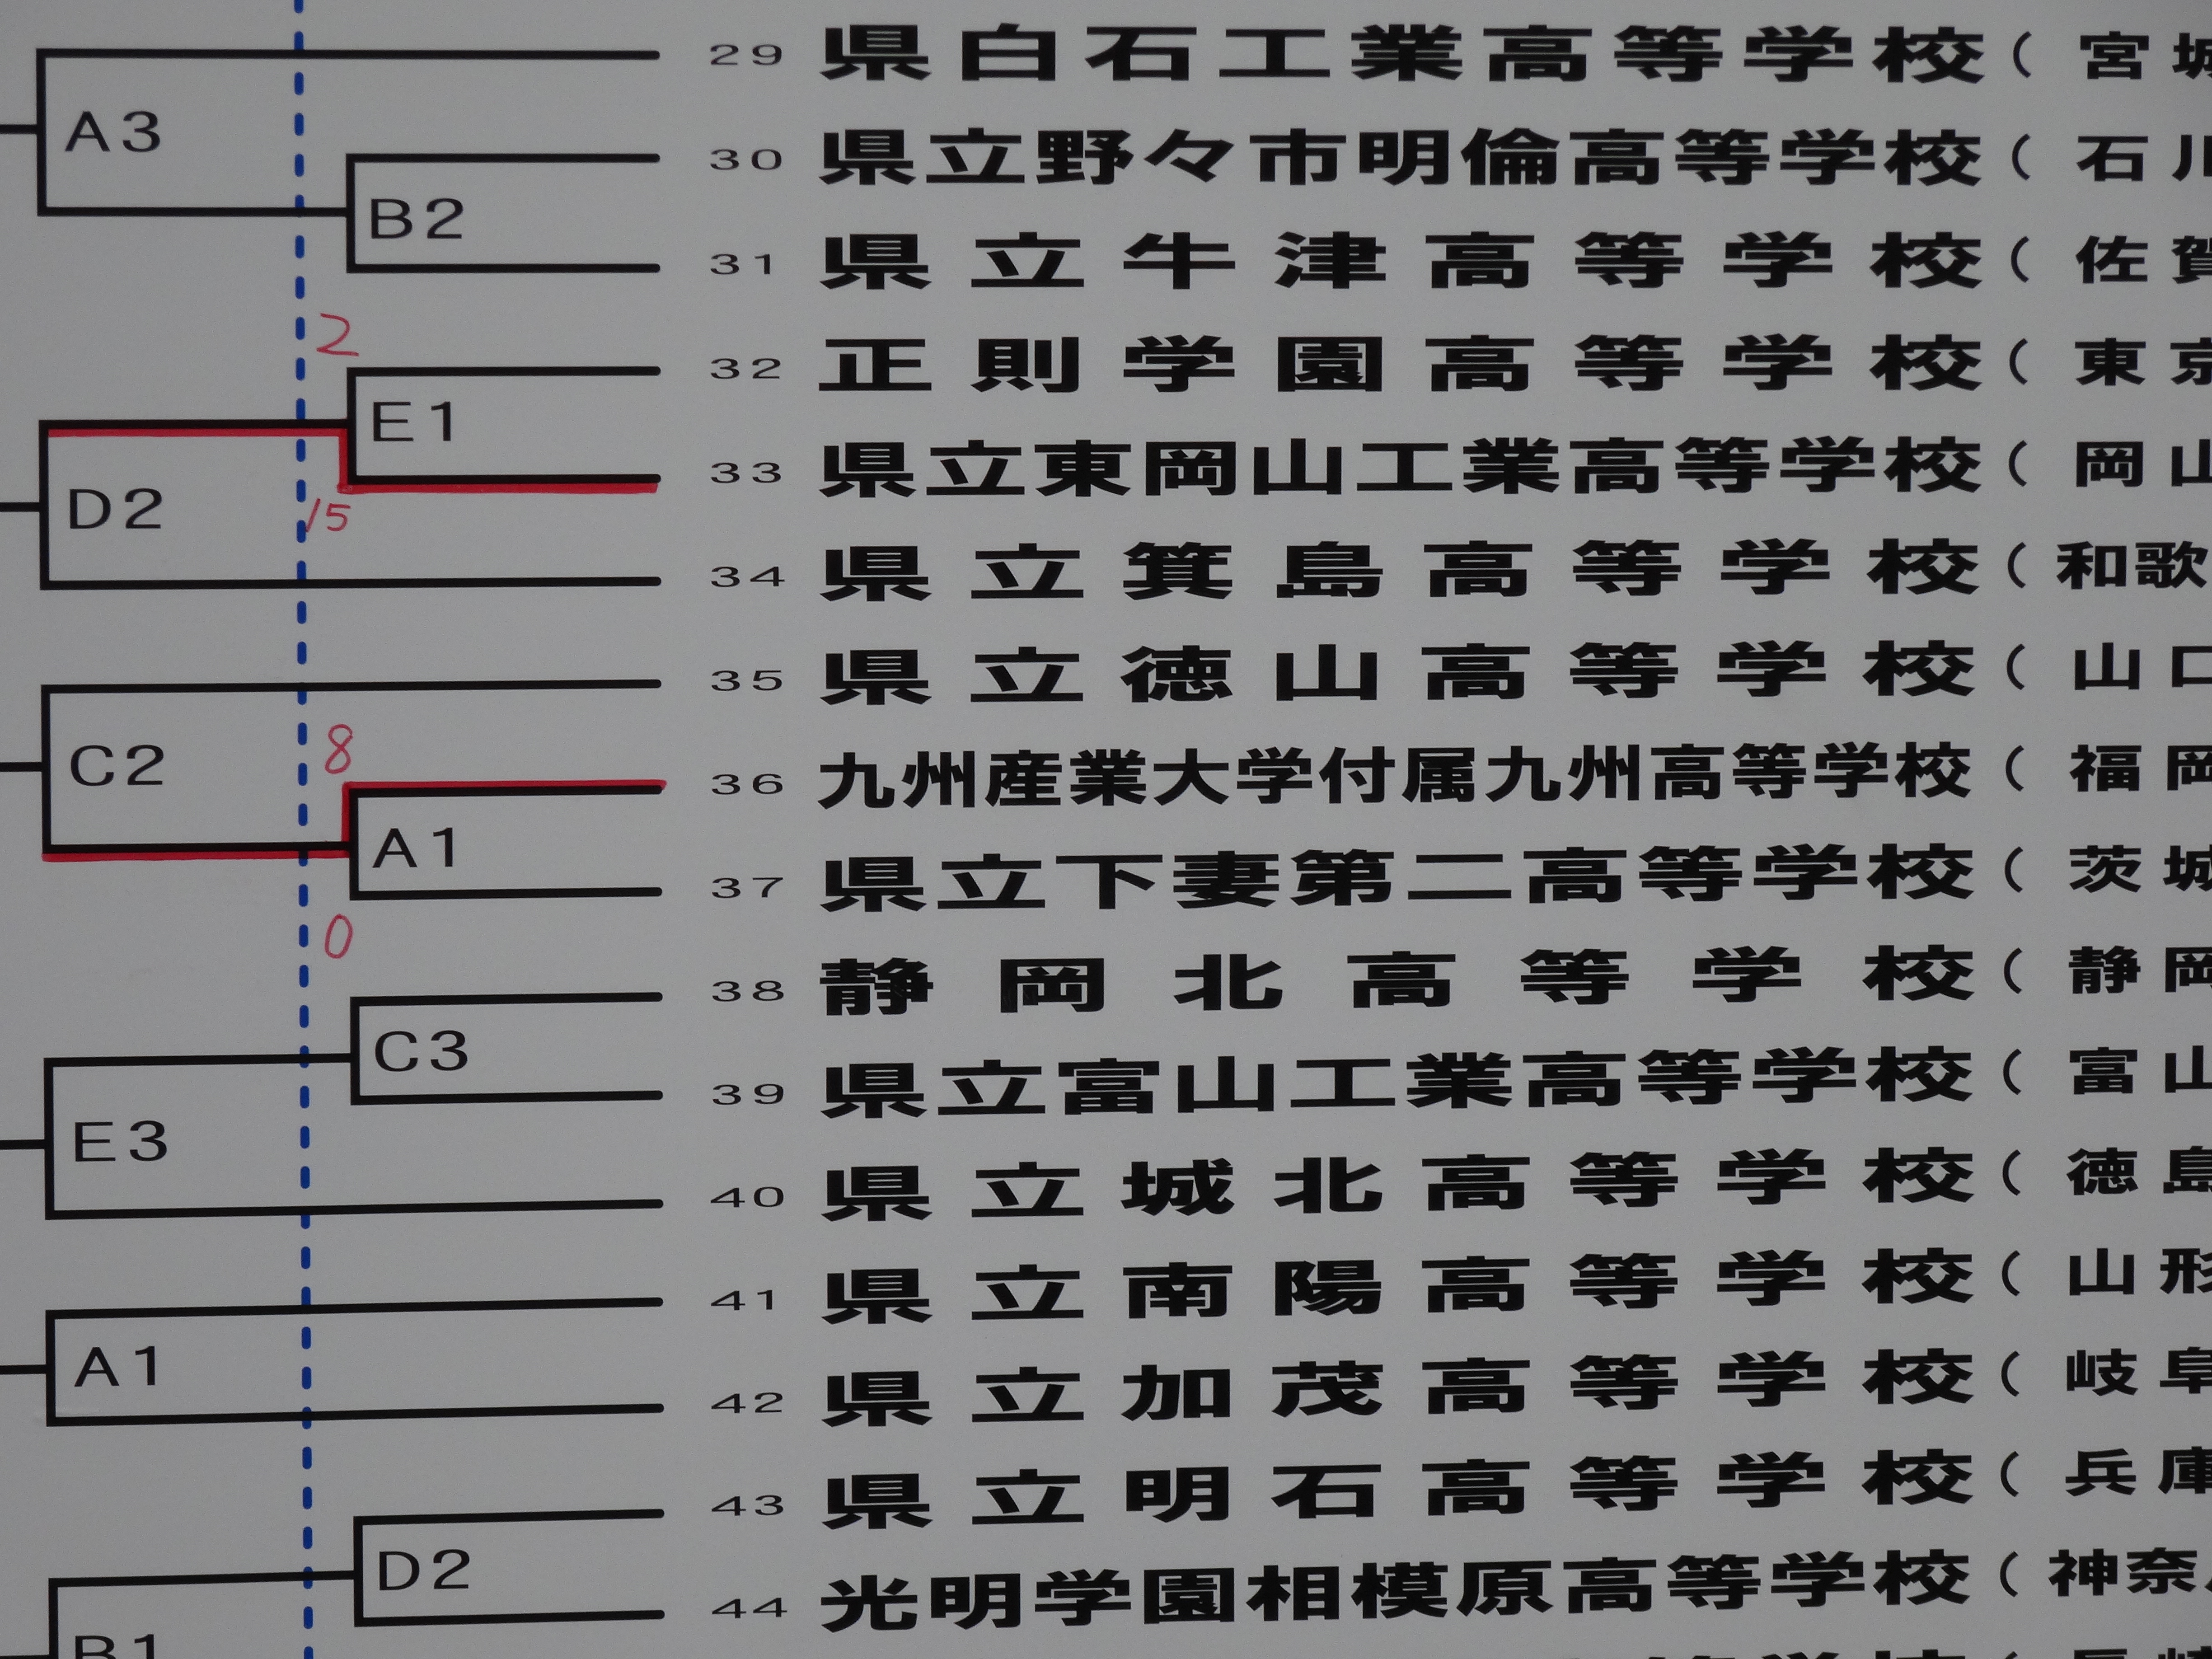 29 県白石工業高等学校( 宮城
A3
30 県立野々市明倫高等学校( 石川
B2
31 県立牛津高等学校( 佐賀
2
32 正則学園高等学校( 東京
E1
33 県立東岡山工業高等学校( 岡山
D2
15
34 県立箕島高等学校( 和歌
35 県立徳山高等学校( 山口
8
C2
36 九州産業大学付属九州高等学校( 福岡
A1
37 県立下妻第二高等学校( 茨城
0
38 静岡北高等学校( 静岡
C3
39 県立富山工業高等学校( 富山
E3
40 県立城北高等学校( 徳島
41 県立南陽高等学校( 山形
A1
42 県立加茂高等学校( 岐阜
43 県立明石高等学校( 兵庫
D2
44 光明学園相模原高等学校( 神奈
B1